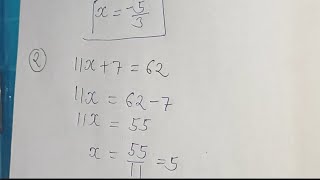 x = -5/3
② 11x + 7 = 62
11x = 62 - 7
11x = 55
x = 55/11 = 5